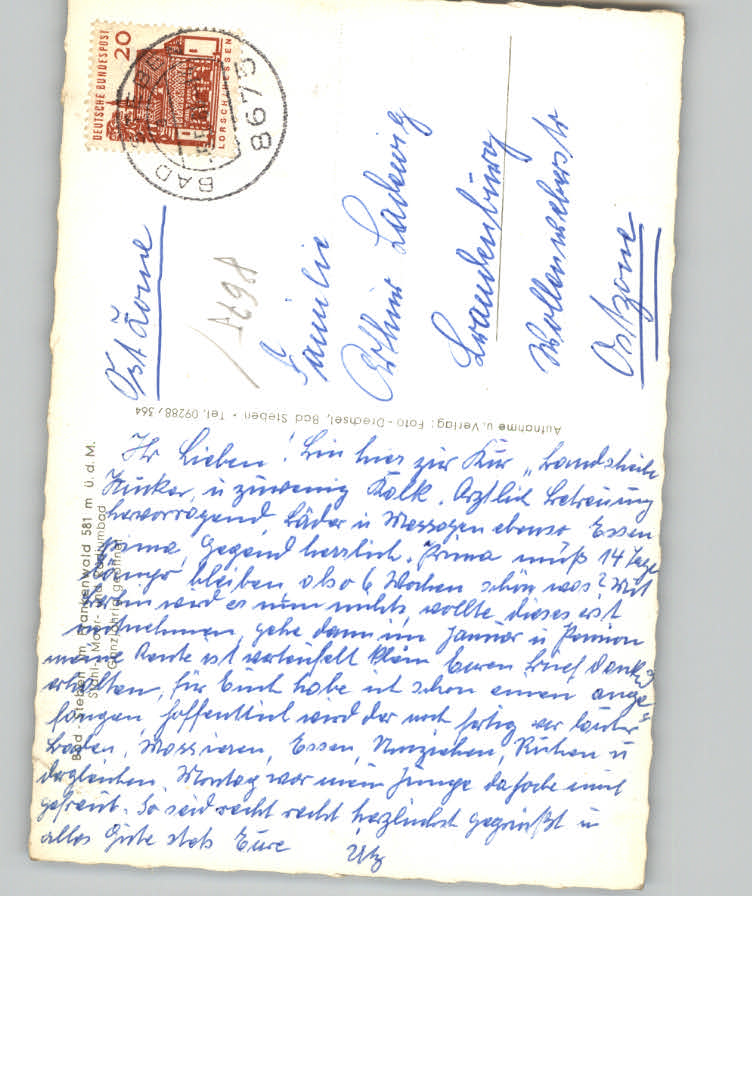 DEUTSCHE BUNDESPOST
20
LORSCH/HESSEN
BAD STEBEN
8675
Ost Zone
A698
Familie
Arthur Ladewig
Brandenburg
Wollenweberstr
Ostzone
Aufnahme u. Verlag: Foto-Drechsel, Bad Steben - Tel. 09288/364
Bad - Steben im Frankenwald 581 m ü. d. M.
Stahl-, Moor- und Radiumbad
Ganzjährig geöffnet
Ihr Lieben! Bin hier zur Kur „Bandscheibe
Zucker, u zuwenig Kalk. Ärztlich Betreuung
hervorragend Bäder u Massagen ebenso Essen
prima, Gegend herrlich. Prima muß 14 Tage
länger bleiben also 6 Wochen schön was? Mit
wird es nun nichts, wollte dieses erst
mitnehmen, gehe dann im Januar in Pension
meine Rente ist verteufelt klein Euren Brief dankend
erhalten, für Euch habe ich schon einen ange
fangen hoffentlich wird der noch fertig vor lauter
Baden, Massieren, Essen, Umziehen, Ruhen u
dergleichen. Montag war mein Junge da habe mich
gefreut. So seid recht recht herzlichst gegrüßt u
alles Gute stets Eure